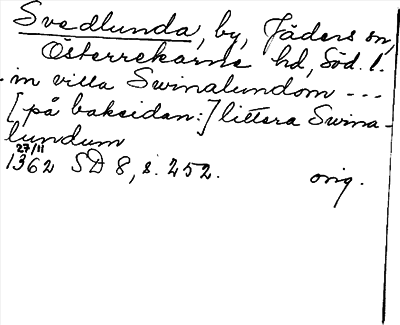 Svedlunda, by, Jäders sn,
Österrekarne hd, Söd. l.
in villa Swinalundom ---
[på baksidan:] littera Swina-
lundum
27/11
1362 SD 8, s. 252. orig.